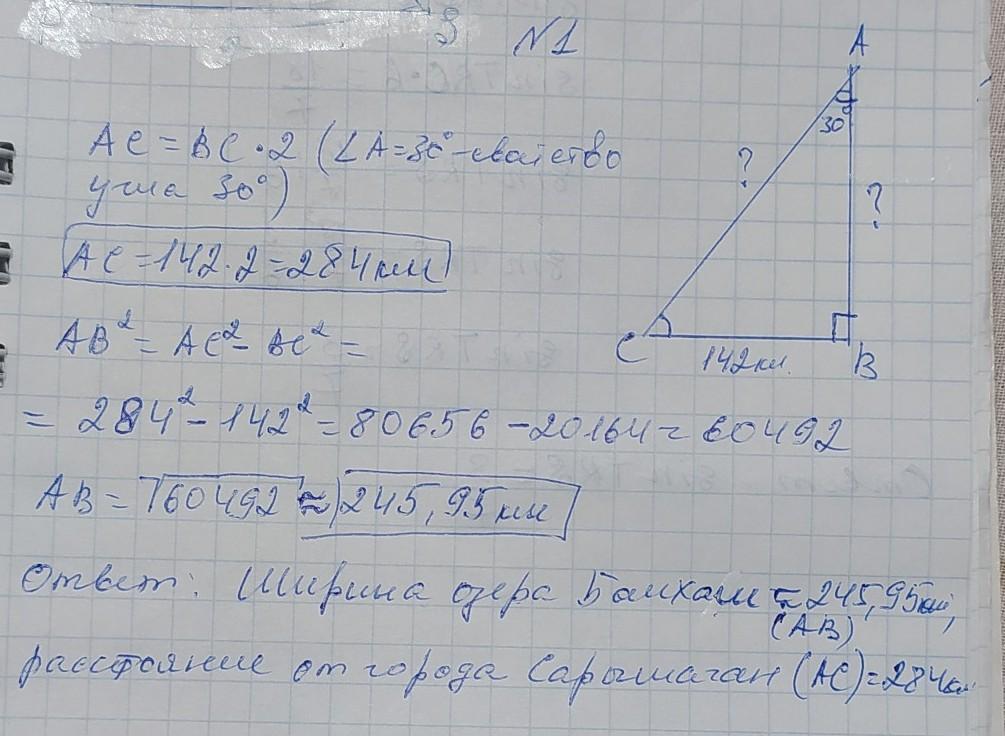 N1
A
30°
?
?
C
142 км.
B
AC = BC · 2 (∠A = 30° - свойство
угла 30°)
AC = 142 · 2 = 284 км
AB² = AC² - BC² =
= 284² - 142² = 80656 - 20164 = 60492
AB = √60492 ≈ 245,95 км
Ответ: Ширина озера Балхаш ≈ 245,95 км,
(AB)
расстояние от города Сарышаган (AC) = 284 км